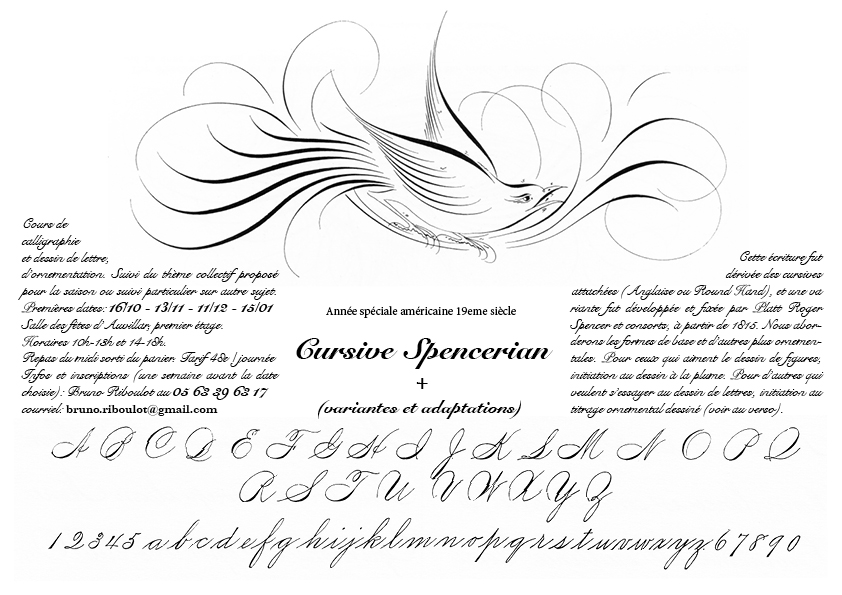 Cours de
calligraphie
et dessin de lettre,
d'ornementation. Suivi du thème collectif proposé
pour la saison ou suivi particulier sur autre sujet.
Premières dates: 16/10 - 13/11 - 11/12 - 15/01
Salle des fêtes d'Auvillar, premier étage.
Horaires 10h-13h et 14-18h.
Repas du midi sorti du panier. Tarif 48e | journée
Infos et inscriptions (une semaine avant la date
choisie): Bruno Riboulot au 05 63 39 63 17
courriel: bruno.riboulot@gmail.com
Année spéciale américaine 19eme siècle
Cursive Spencerian
+
(variantes et adaptations)
Cette écriture fut
dérivée des cursives
attachées (Anglaise ou Round Hand), et une va
riante fut développée et fixée par Platt Roger
Spencer et consorts, à partir de 1815. Nous abor-
derons les formes de base et d'autres plus ornemen-
tales. Pour ceux qui aiment le dessin de figures,
initiation au dessin à la plume. Pour d'autres qui
veulent s'essayer au dessin de lettres, initiation au
titrage ornemental dessiné (voir au verso).
A B C D E F G H I J K L M N O P Q
R S T U V W X Y Z
1 2 3 4 5 a b c d e f g h i j k l m n o p q r s t u v w x y z 6 7 8 9 0